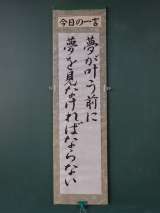 今日の一言
夢が叶う前に
夢を見なければならない